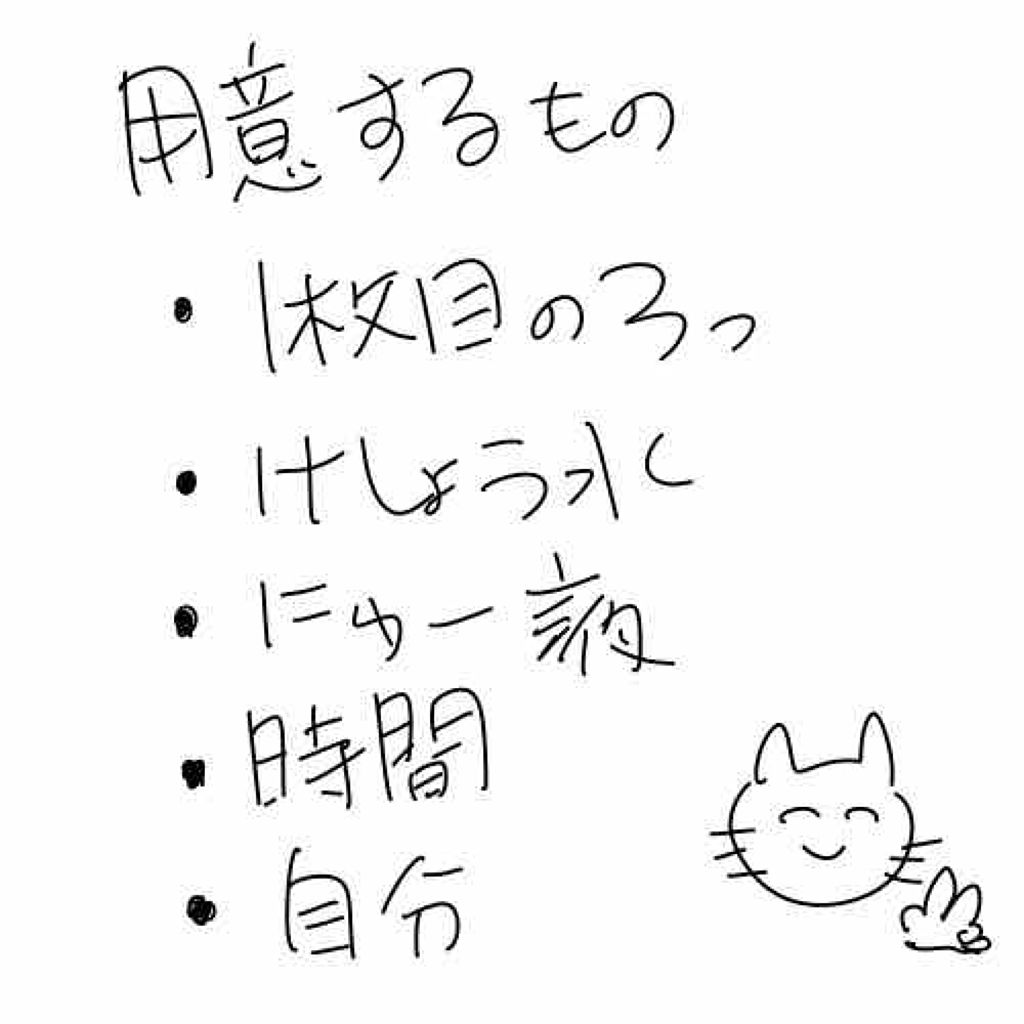 用意するもの
・1枚目のろっ
・けしょう水
・にゅー液
・時間
・自分